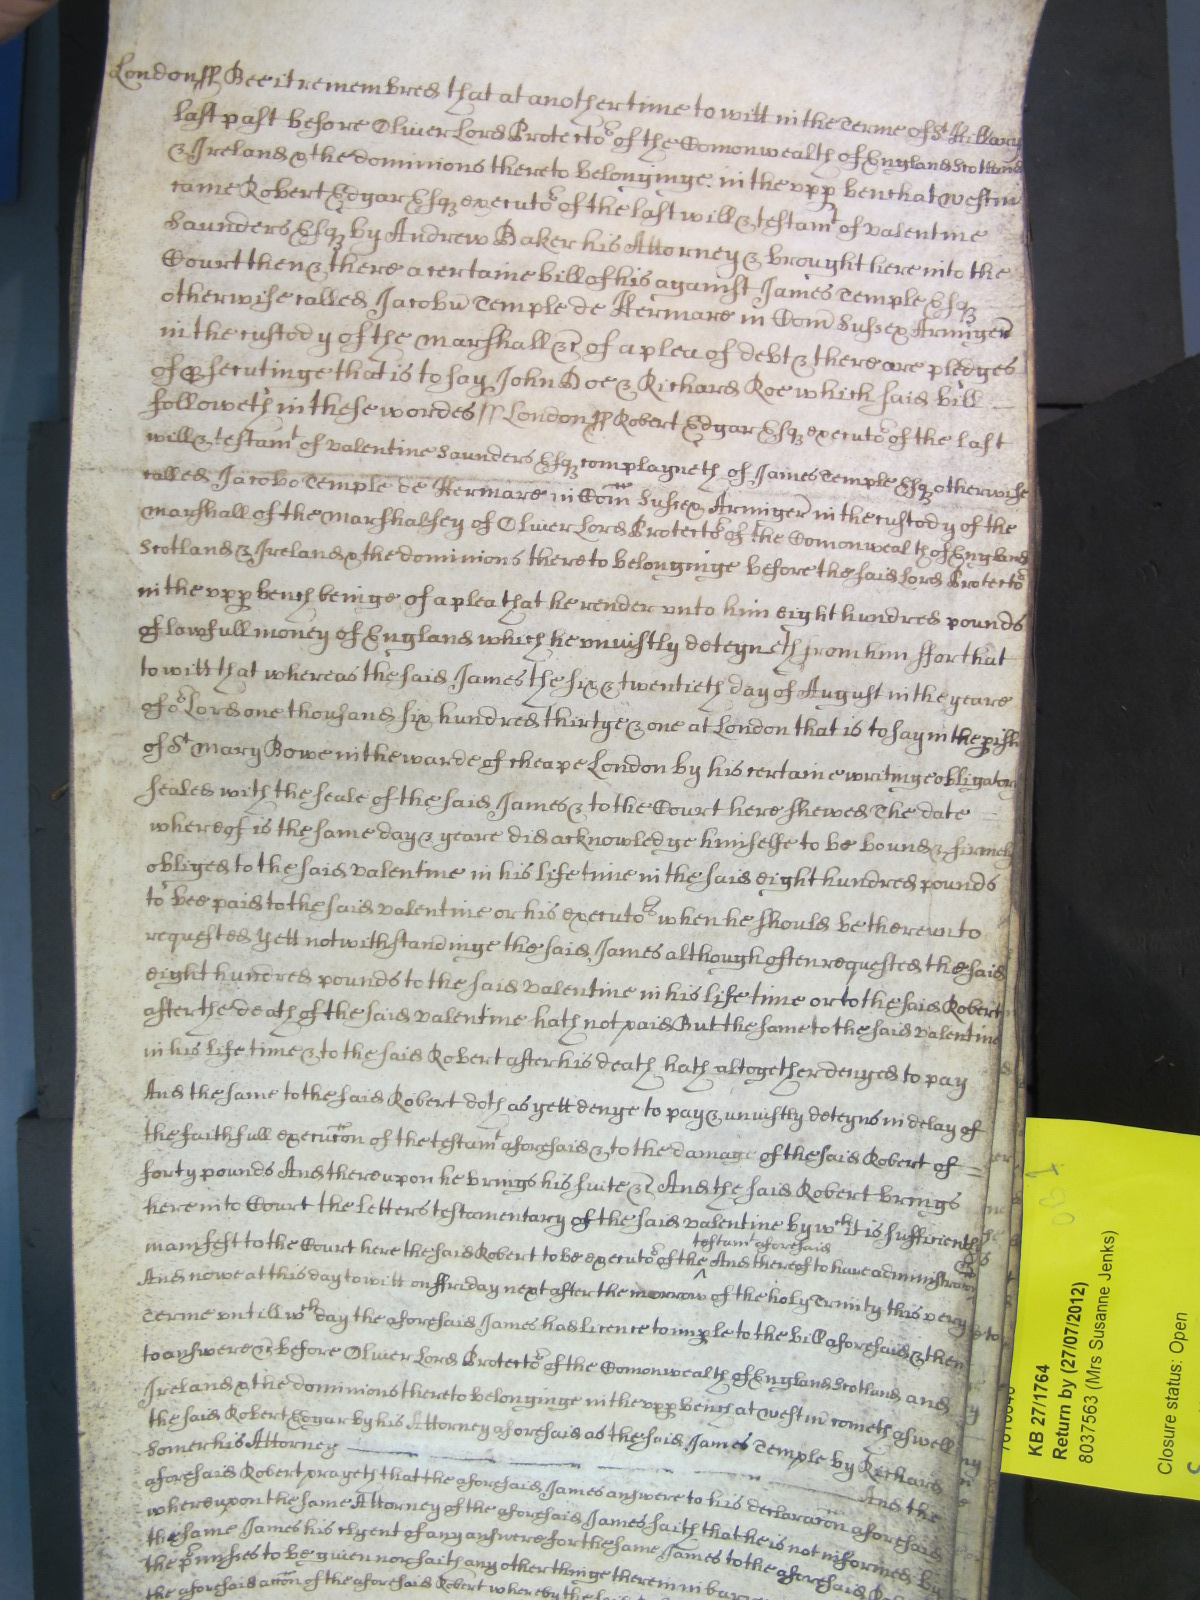 London ss Bee it remembred that at another time to witt in the Terme of St Hillary
last past before Oliver Lord Protector of the Comonwealth of England Scotland
& Ireland & the dominions thereto belonginge in the vpp bench at westm
came Robert Edgar Esq executor of the last will & testamt of valentine
Saunders Esq by Andrew Baker his Attorney & brought here into the
Court then & there a certaine bill of his against James Temple Esq
otherwise called Jacobu Temple de Hermare in Com Sussex Armiger
in the custody of the marshall &c of a plea of debt & there are pledges
of psecutinge that is to say John Doe & Richard Roe which said bill
followeth in these wordes ss London ss Robert Edgar Esq executor of the last
will & testamt of valentine Saunders Esq complayneth of James Temple Esq otherwise
called Jacobo Temple de Hermare in Com Sussex Armiger in the custody of the
marshall of the marshalsey of Oliver Lord Protector of the Comonwealth of England
Scotland & Ireland & the dominions thereto belonginge before the said Lord Protector
in the vpp bench beinge of a plea that he render vnto him eight hundred pounds
of lawfull money of England which he vniustly deteyneth from him ffor that
to witt that whereas the said James the six & twentieth day of August in the yeare
of or Lord one thousand six hundred thirtye & one at London that is to say in the pish
of St Mary Bowe in the warde of cheape London by his certaine writinge obligatory
sealed with the seale of the said James & to the Court here shewed The date
whereof is the same day & yeare did acknowledge himselfe to be bound & firmely
obliged to the said valentine in his life time in the said eight hundred pounds
to bee paid to the said valentine or his executors when he should be therevnto
requested yett notwithstandinge the said James although often requested the said
eight hundred pounds to the said valentine in his life time or to the said Robert
after the death of the said valentine hath not paid But the same to the said valentine
in his life time & to the said Robert after his death hath altogether denyed to pay
And the same to the said Robert doth as yett denye to pay & vniustly deteyns in delay of
the faithfull execucon of the testamt aforesaid & to the damage of the said Robert of
forty pounds And thereupon he brings his suite &c And the said Robert brings
here into Court the Letters testamentary of the said valentine by wch it is sufficiently
manifest to the Court here the said Robert to be executor of the testamt aforesaid And thereof to have administracon
And nowe at this day to witt on ffriday next after the morrow of the holy Trinity this very
Terme vntill wch day the aforesaid James had licence to imple to the bill aforesaid & then
to answere &c before Oliver Lord Protector of the Comonwealth of England Scotland and
Ireland & the dominions thereto belonginge in the vpp bench at westm cometh aswell
the said Robert Edgar by his Attorney aforesaid as the said James Temple by Richard
Somer his Attorney And the
aforesaid Robert prayeth that the aforesaid James answere to his declaracon aforesaid
wherevpon the same Attorney of the aforesaid James saith that he is not informed by
the same James his clyent of any answere for the same James to the aforesaid
the pmisses to be giuen nor saith any other thinge therein in bar
the aforesaid accon of the aforesaid Robert whereby the
KB 27/1764
Return by (27/07/2012)
8037563 (Mrs Susanne Jenks)
Closure status: Open